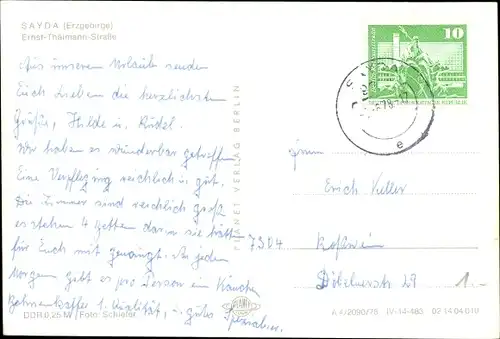 SAYDA (Erzgebirge)
Ernst-Thälmann-Straße
Aus unserem Urlaub senden
Euch Lieben die herzlichsten
Grüße, Hilde u. Rudel.
Wir haben es wunderbar getroffen
Eine Verpflegung reichlich u. gut.
Die Zimmer sind reichlich groß
es stehen 4 Betten darin sie hätten
für Euch mit gereicht. An jeden
Morgen gibt es pro Person ein Kännchen
Bohnenkaffee 1. Qualität, u. gutes
DDR 0,25 M / Foto: Schiefer
PLANET VERLAG BERLIN
10
DEUTSCHE DEMOKRATISCHE REPUBLIK
SAYDA
e
Herrn
Erich Keller
7304 Roßwein
Döbelnerstr 27
1.-
A 4/2090/78 IV-14-483 02 14 04 010